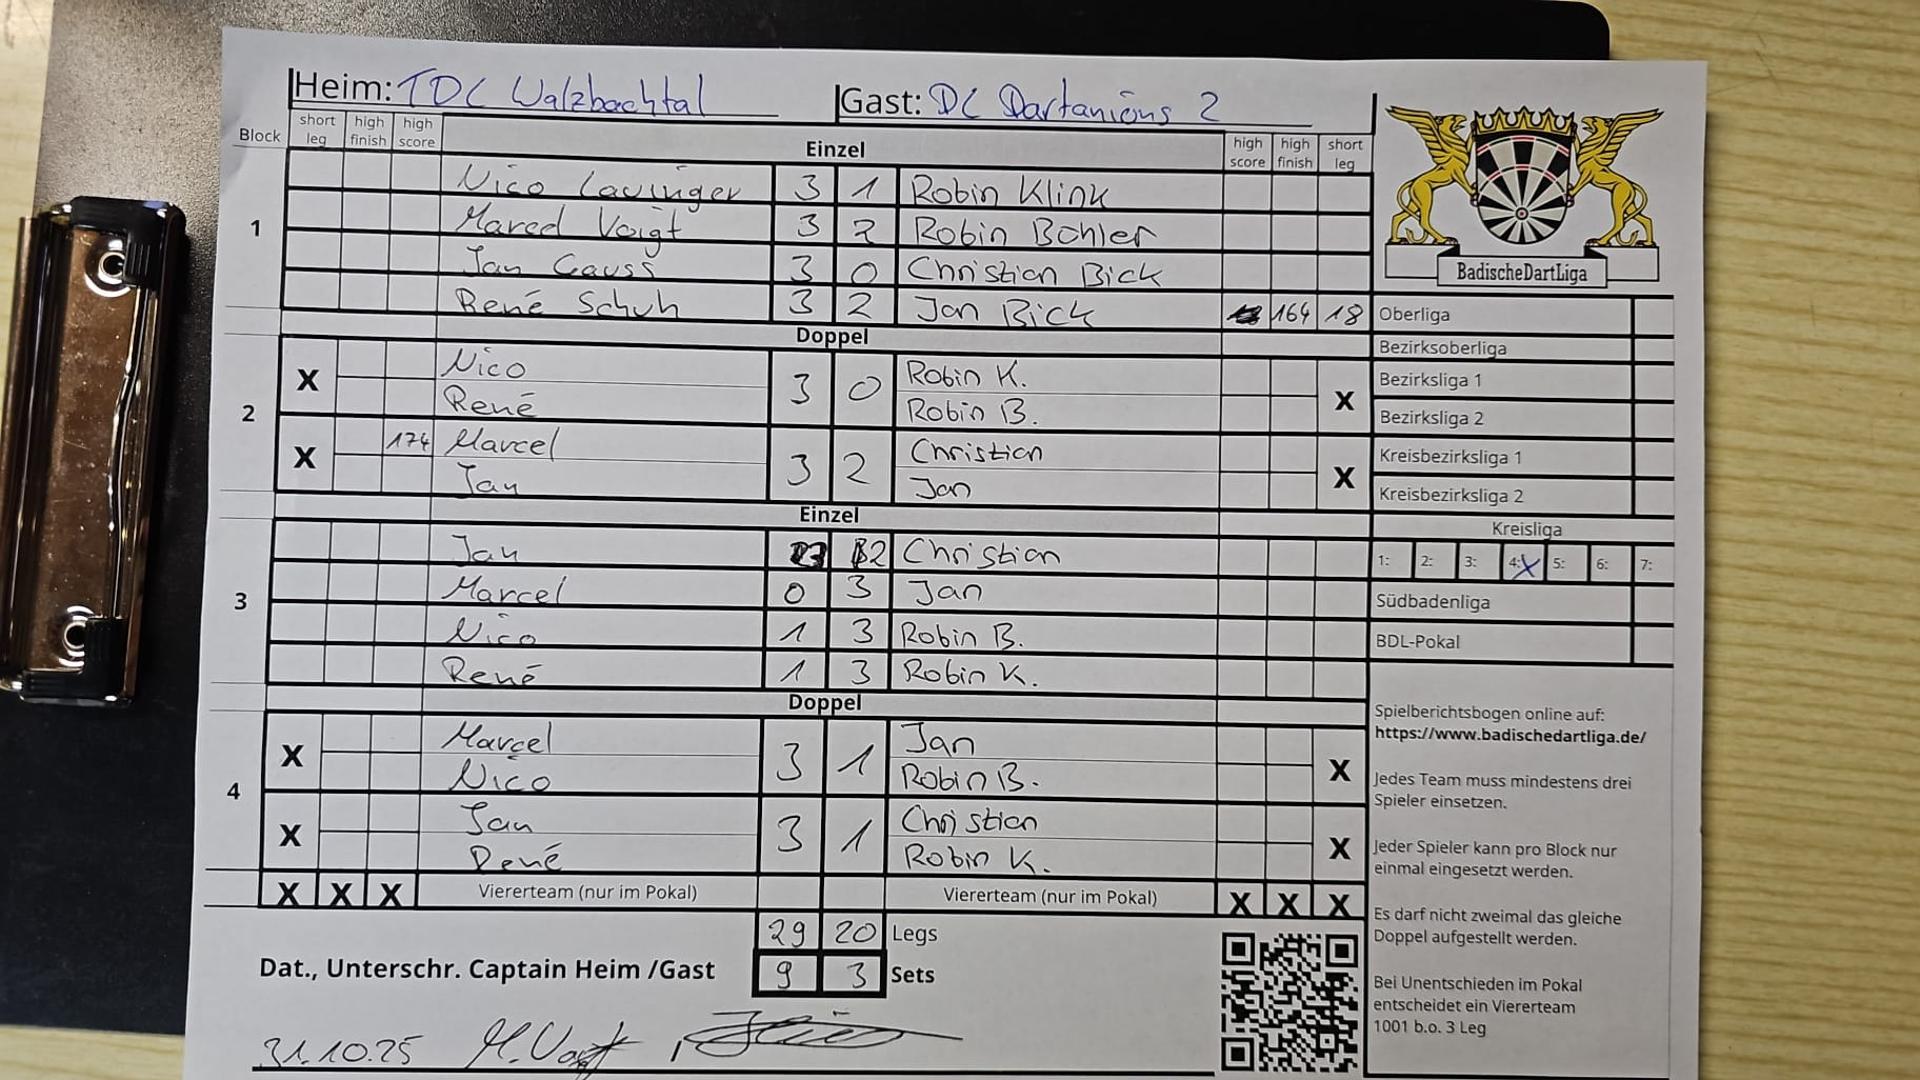 Heim: TDC Walzbachtal Gast: DC Dartanions 2
Block short leg high finish high score Einzel high score high finish short leg
1
Nico Lavinger 3 1 Robin Klink
Marcel Voigt 3 2 Robin Bohler
Jan Gauss 3 0 Christian Bick
René Schuh 3 2 Jan Bick 164 18
Doppel
2
X Nico 3 0 Robin K. X
René Robin B.
X 174 Marcel 3 2 Christian X
Jan Jan
Einzel
3
Jan 3 2 Christian
Marcel 0 3 Jan
Nico 1 3 Robin B.
René 1 3 Robin K.
Doppel
4
X Marcel 3 1 Jan X
Nico Robin B.
X Jan 3 1 Christian X
René Robin K.
X X X Viererteam (nur im Pokal) Viererteam (nur im Pokal) X X X
29 20 Legs
Dat., Unterschr. Captain Heim /Gast 9 3 Sets
31.10.25 M. Voigt
BadischeDartLiga
Oberliga
Bezirksoberliga
Bezirksliga 1
Bezirksliga 2
Kreisbezirksliga 1
Kreisbezirksliga 2
Kreisliga
1: 2: 3: 4: X 5: 6: 7:
Südbadenliga
BDL-Pokal
Spielberichtsbogen online auf:
https://www.badischedartliga.de/
Jedes Team muss mindestens drei
Spieler einsetzen.
Jeder Spieler kann pro Block nur
einmal eingesetzt werden.
Es darf nicht zweimal das gleiche
Doppel aufgestellt werden.
Bei Unentschieden im Pokal
entscheidet ein Viererteam
1001 b.o. 3 Leg